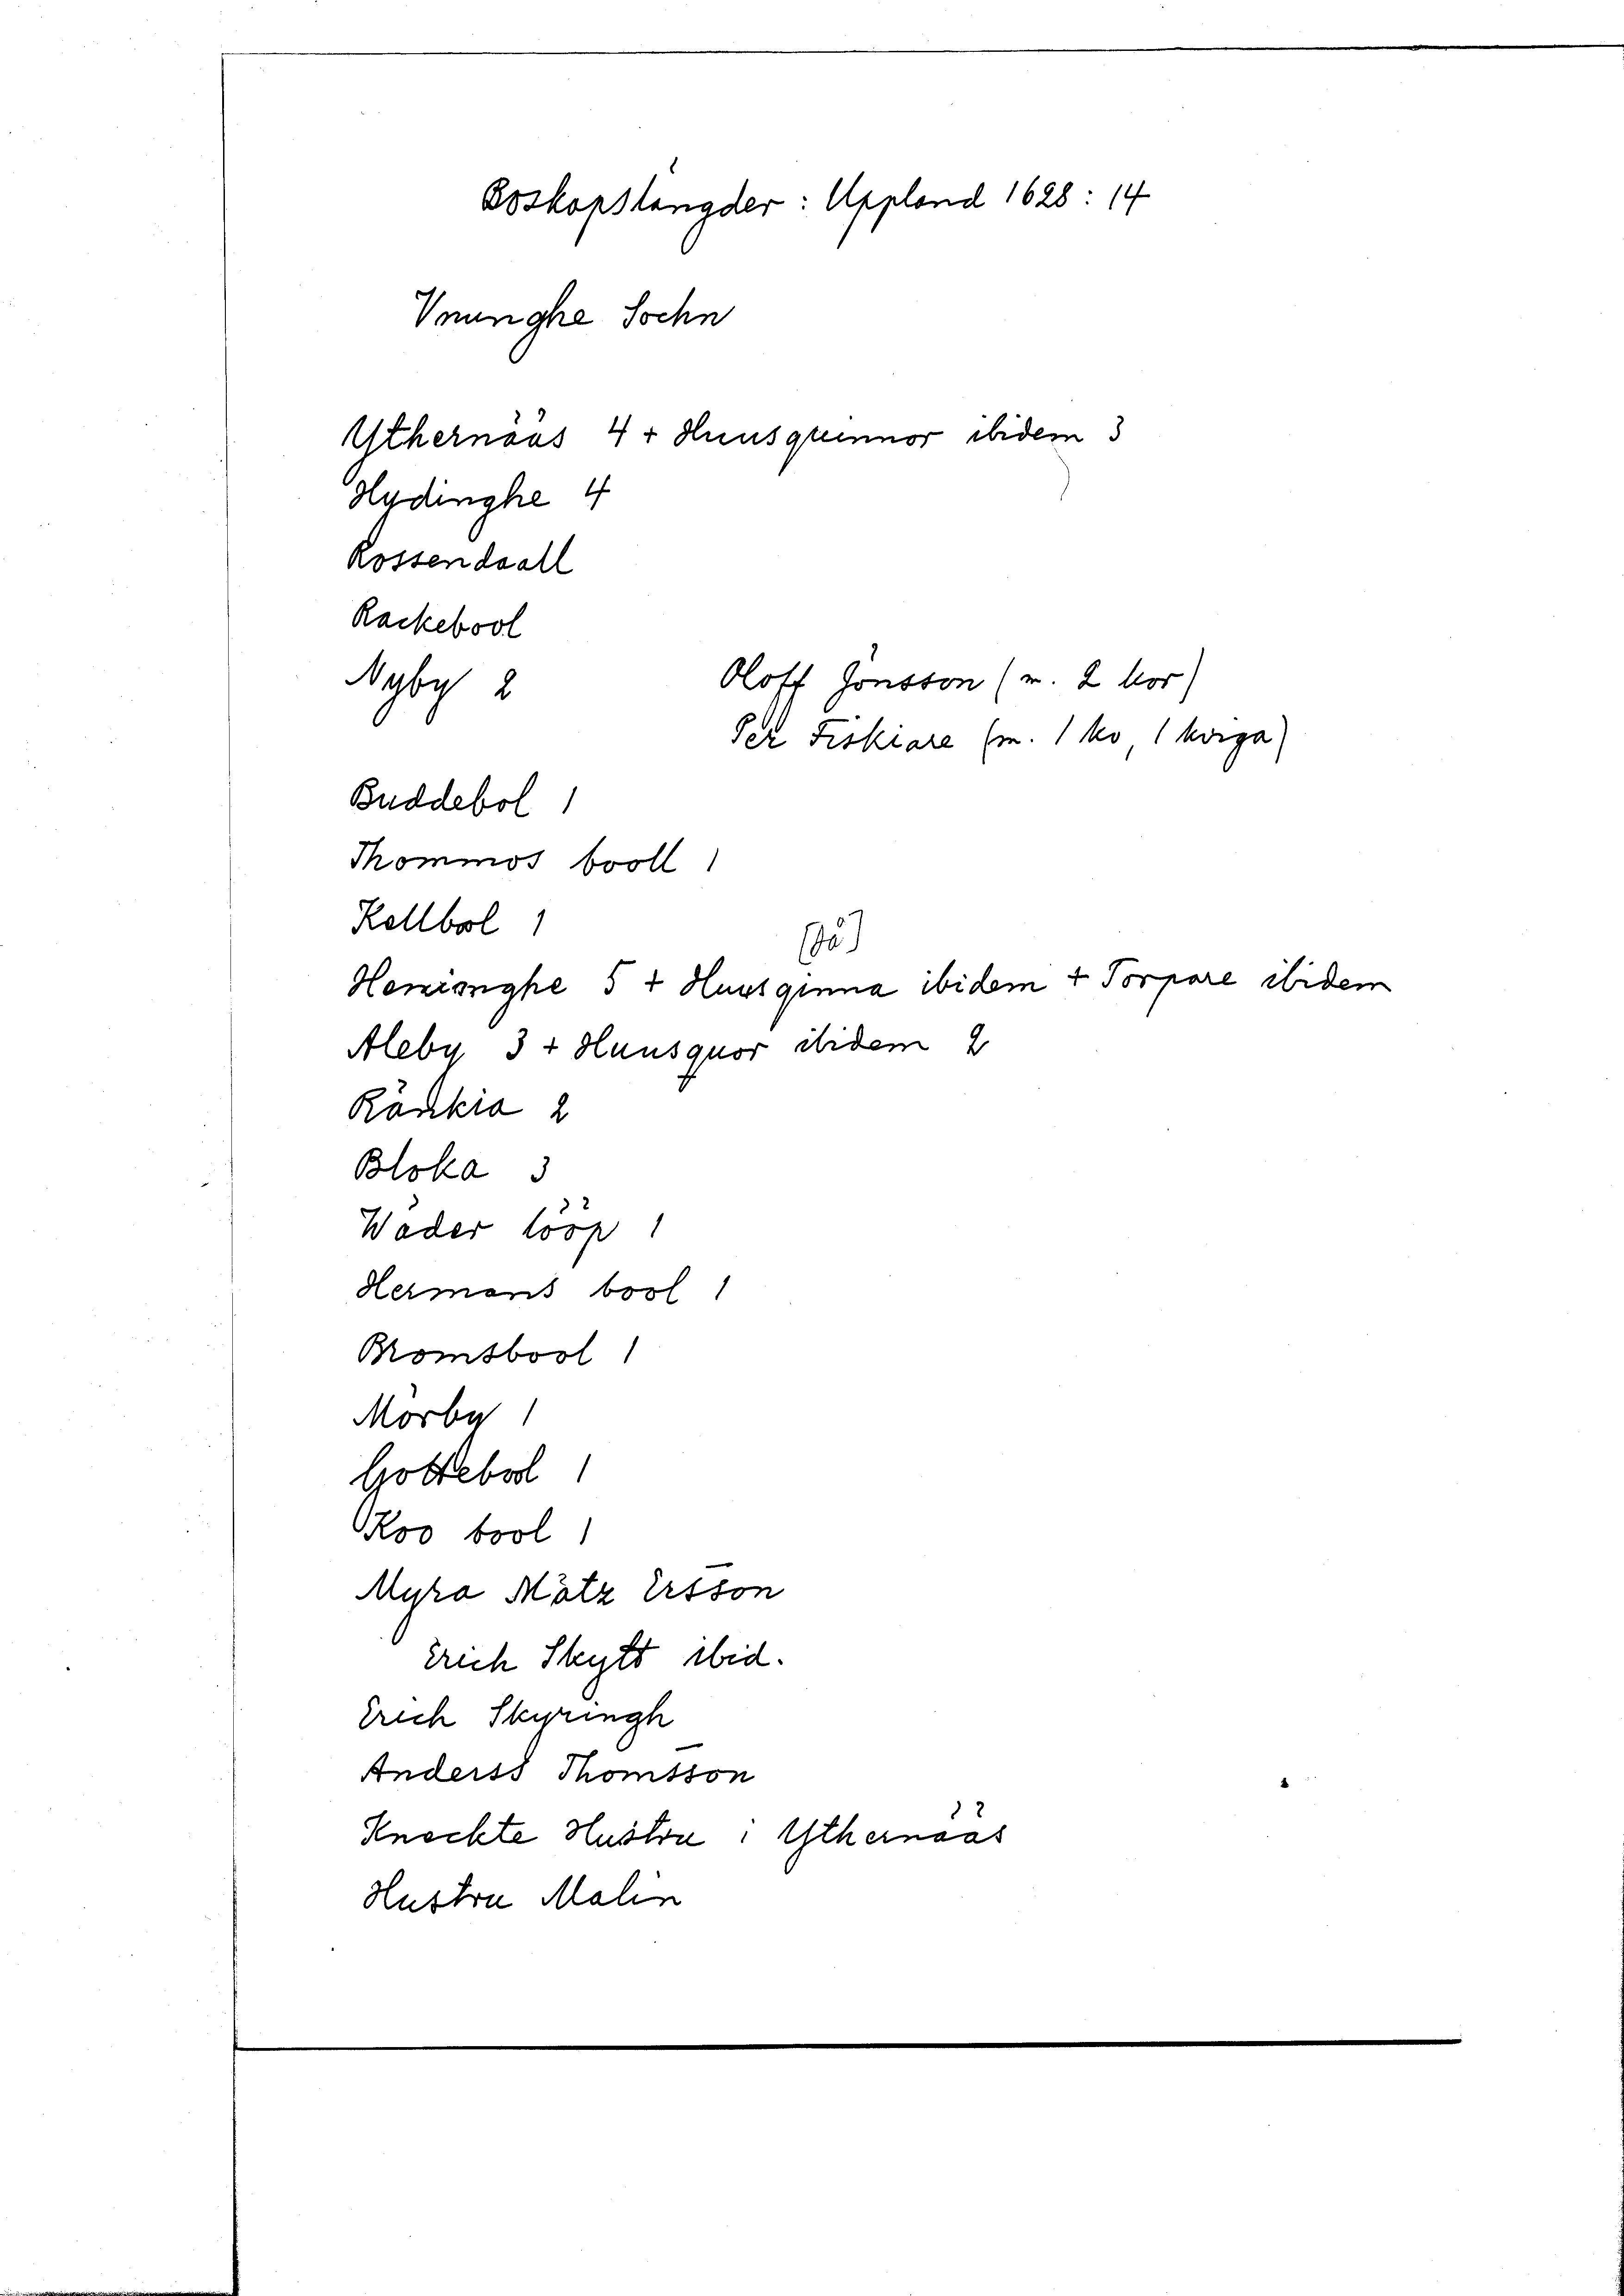 Boskapslängder: Uppland 1628: 14
Vnunghe Sochn
Ythernääs 4 + Huusquinnor ibidem 3
Hydinghe 4
Rossendaall
Rackebool
Nyby 2 Oloff Jönsson (m. 2 kor)
Per Fiskiare (m. 1 ko, 1 kviga)
Buddebol 1
Thommos booll 1
Kellbol 1
(så)
Heminghe 5 + Huusqinna ibidem + Torpare ibidem
Aleby 3 + Huusquor ibidem 2
Ränkia 2
Bloka 3
Wäder lööp 1
Hermans bool 1
Bromsbool 1
Mörby 1
Gottebol 1
Koo bool 1
Myra Mätz Ersson
Erich Skytt ibid.
Erich Skyringh
Anderss Thomsson
Knechte Hustru i Ythernääs
Hustru Malin